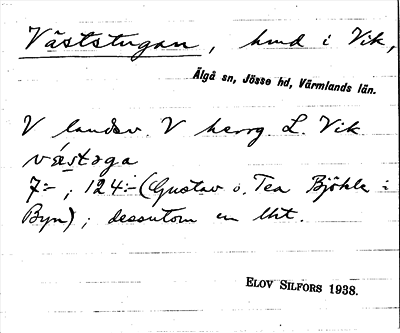 Väststugan, hmd i Vik,
Älgå sn, Jösse hd, Värmlands län.
V landsv. V herrg. L. Vik
västəga
7:- ; 124:- (Gustav o. Tea Björkla i
Byn) ; dessutom en lht.
ELOV SILFORS 1938.